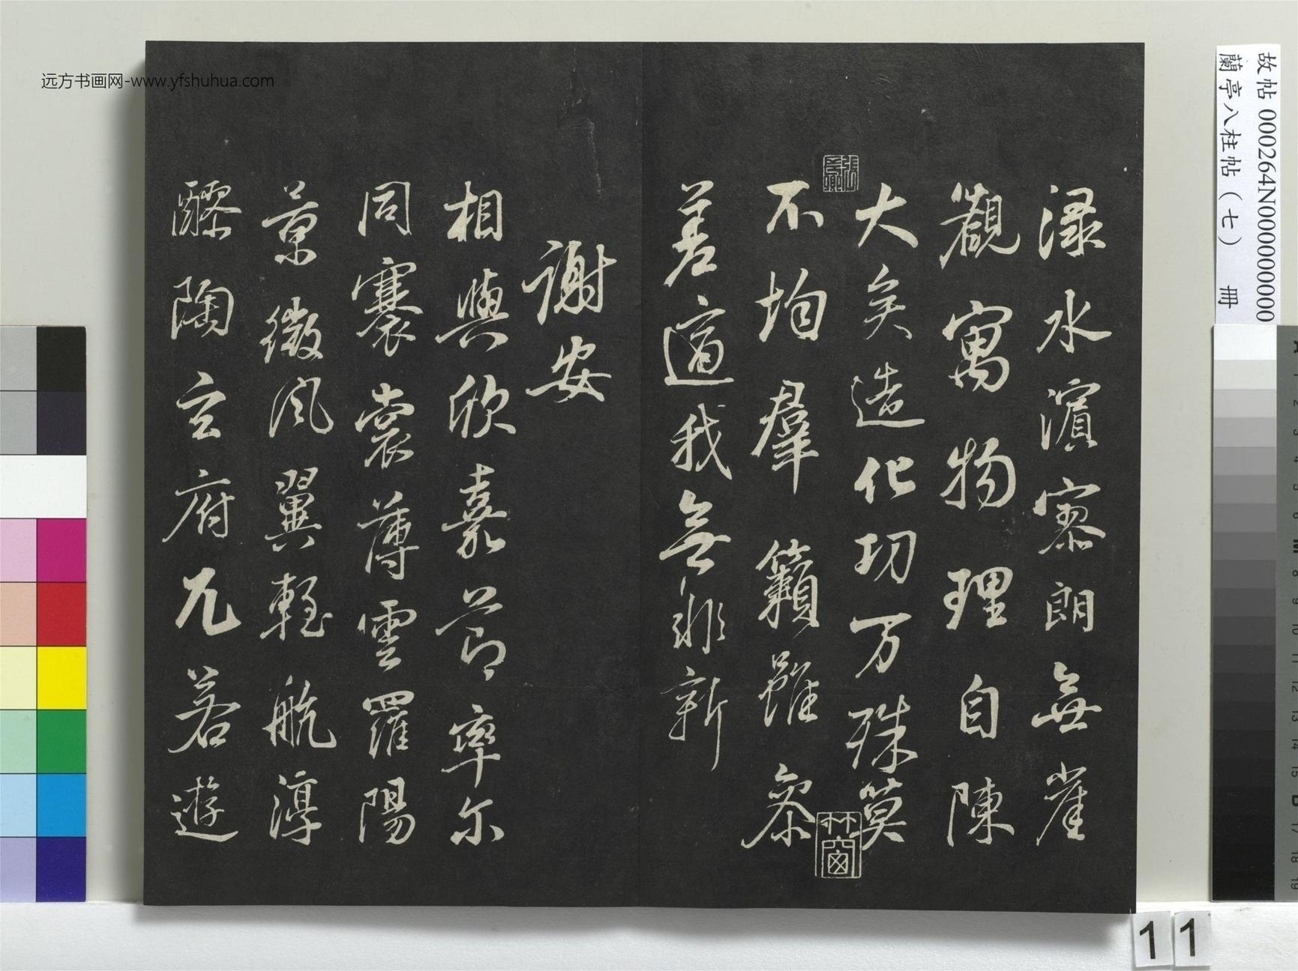 远方书画网-www.yfshuhua.com
故帖 000264N000000000
蘭亭八柱帖（七） 冊
淥水濱寥朗無崖
觀寓物理自陳
大矣造化功万殊莫
不均羣籟雖参
差適我無非新
謝安
相與欣嘉節率尔
同褰裳薄雲羅陽
景微風翼輕航淳
醪陶玄府兀若遊
竹窗
11